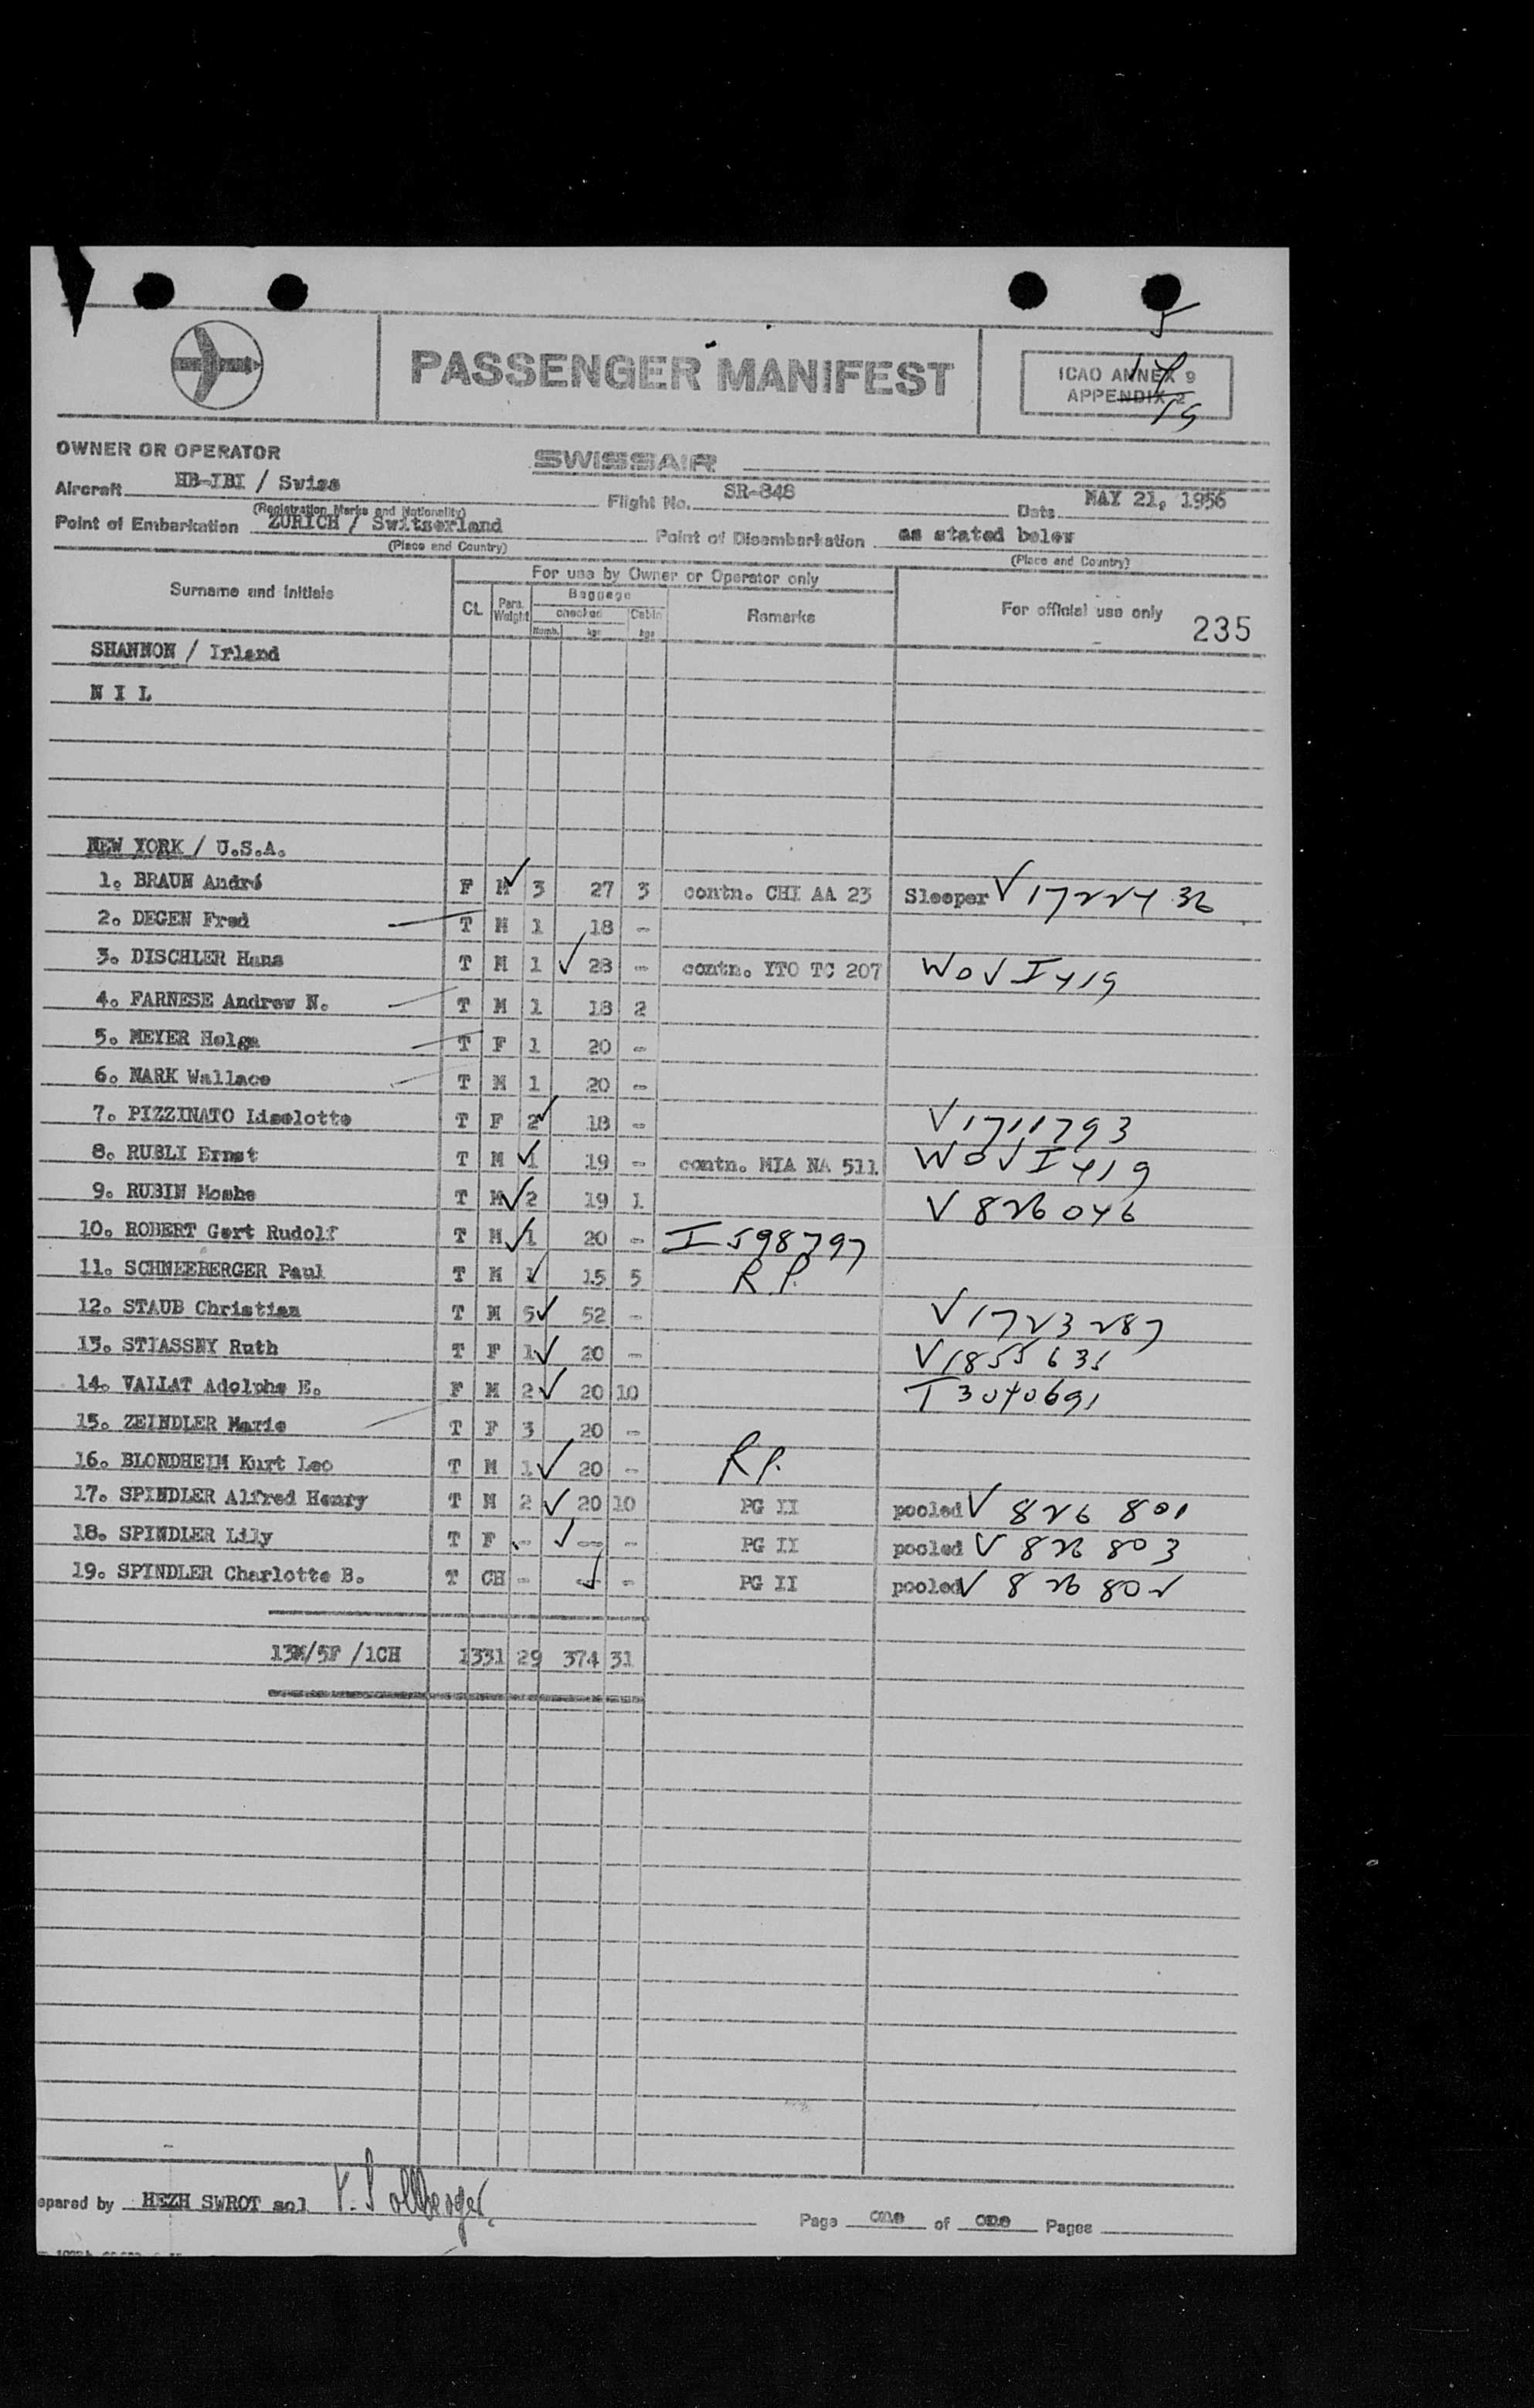 PASSENGER MANIFEST
ICAO ANNEX 9
APPENDIX 2
OWNER OR OPERATOR SWISSAIR
Aircraft HB-IBI / Swiss Flight No. SR-848 Date MAY 21, 1956
(Registration Marks and Nationality)
Point of Embarkation ZURICH / Switzerland Point of Disembarkation as stated below
(Place and Country) (Place and Country)
Surname and initials For use by Owner or Operator only For official use only 235
CL Pass. Weight Baggage checked Numb. kgs Cabin kgs Remarks
SHANNON / Irland
N I L
NEW YORK / U.S.A.
1. BRAUN André F M 3 27 3 contn. CHI AA 23 Sleeper V 1722436
2. DEGEN Fred T M 1 18 -
3. DISCHLER Hans T M 1 28 - contn. YTO TC 207 WOV I 419
4. FARNESE Andrew N. T M 1 18 2
5. MEYER Helga T F 1 20 -
6. NARK Wallace T M 1 20 -
7. PIZZINATO Liselotte T F 2 18 - V 1711793
8. RUSLI Ernst T M 1 19 - contn. MIA NA 511 WOV I 419
9. RUBIN Moshe T M 2 19 1 V 826046
10. ROBERT Gert Rudolf T M 1 20 - I 598797
11. SCHNEEBERGER Paul T M 1 15 5 R P.
12. STAUB Christian T M 5 52 - V 1723287
13. STIASSNY Ruth T F 1 20 - V 1855631
14. VALLAT Adolphe E. F M 2 20 10 T 3040691
15. ZEINDLER Marie T F 3 20 -
16. BLONDHEIM Kurt Leo T M 1 20 - R P.
17. SPINDLER Alfred Henry T M 2 20 10 PG II pooled V 826 801
18. SPINDLER Lily T F - - - PG II pooled V 826 803
19. SPINDLER Charlotte B. T CH - - - PG II pooled V 826 802
13M/5F /1CH 1331 29 374 31
epared by HEZH SWROT sol Page one of one Pages